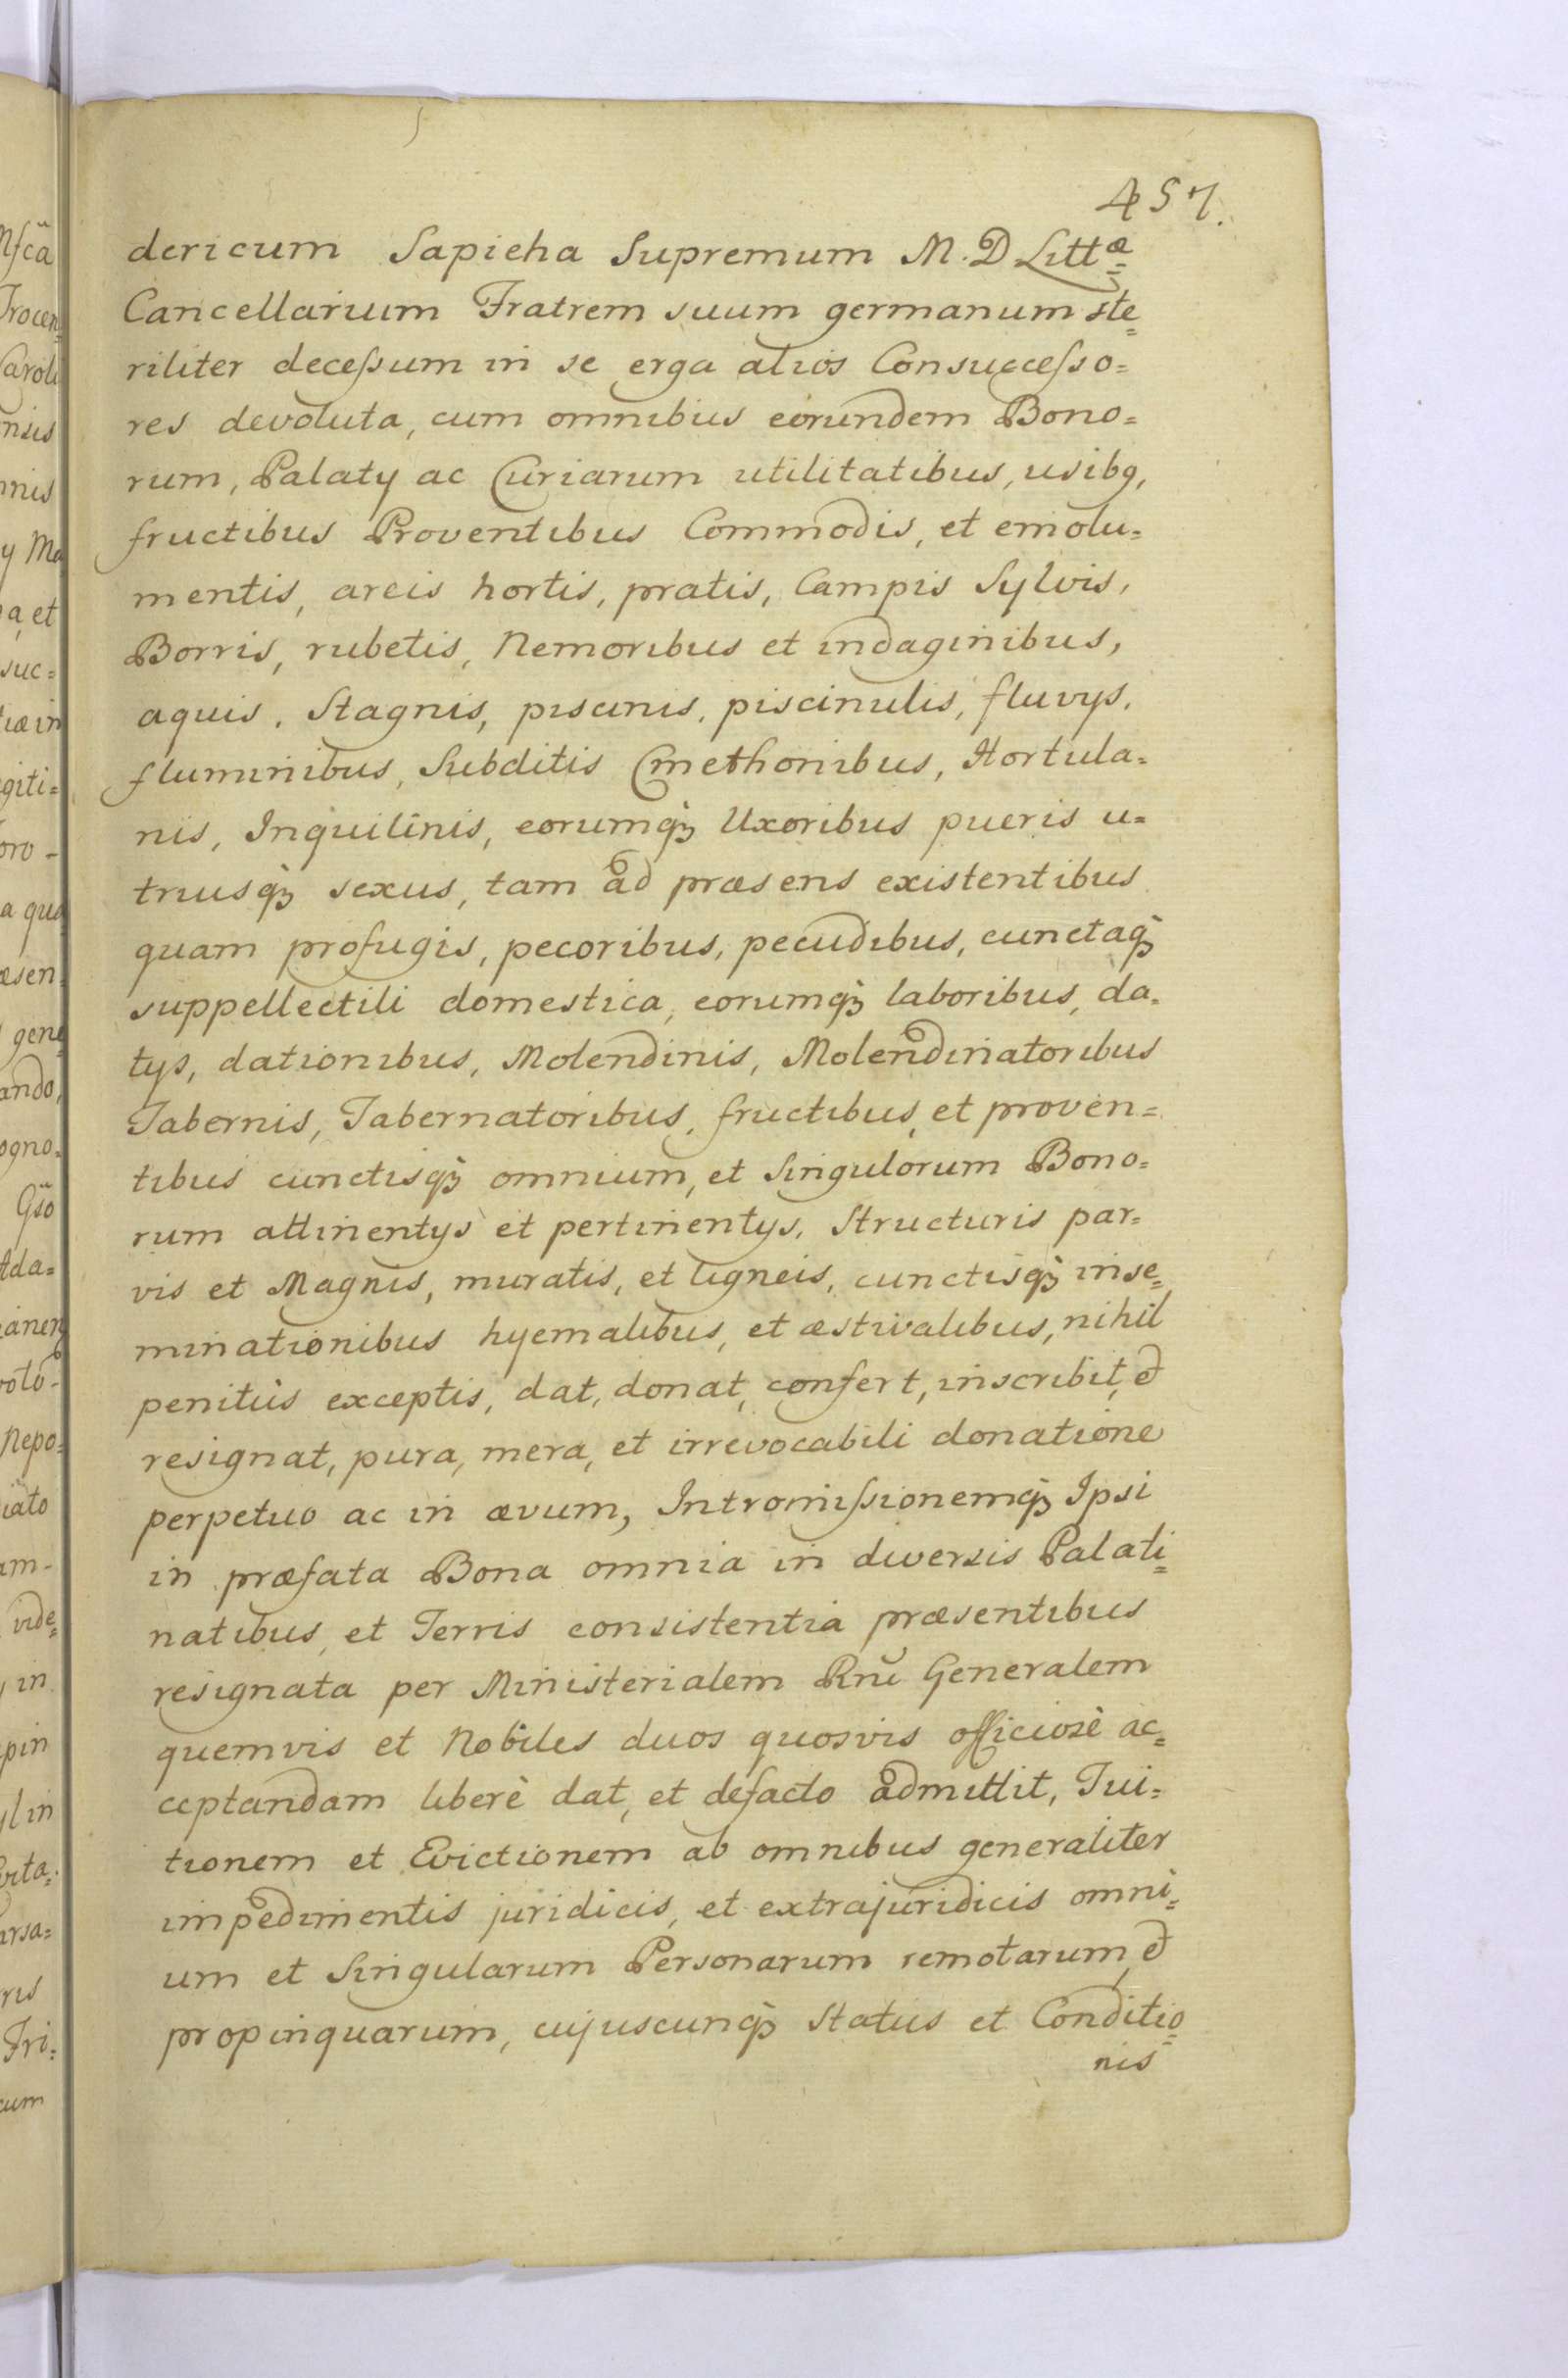 457.
dericum Sapieha Supremum M. D Littæ
Cancellarium Fratrem suum germanum ste=
riliter decessum in se erga alios Consuccesso=
res devoluta, cum omnibus eorundem Bono=
rum, Palatÿ ac Curiarum utilitatibus, usibq,
fructibus Proventibus Commodis, et emolu=
mentis, areis hortis, pratis, Campis Sylvis,
Borris, rubetis, Nemoribus et indaginibus,
aquis, Stagnis, piscinis, piscinulis, fluvÿs,
fluminibus, Subditis Cmethonibus, Hortula=
nis, Inquilinis, eorumq; Uxoribus pueris u=
triusq; sexus, tam ad præsens existentibus
quam profugis, pecoribus, pecudibus, cunctaq;
suppellectili domestica, eorumq; laboribus, da=
tÿs, dationibus, Molendinis, Molendinatoribus
Tabernis, Tabernatoribus, fructibus, et proven=
tibus cunctisq; omnium, et Singulorum Bono=
rum attinentÿs et pertinentÿs, Structuris par=
vis et Magnis, muratis, et ligneis, cunctisq; inse=
minationibus hyemalibus, et æstivalibus, nihil
penitùs exceptis, dat, donat, confert, inscribit, et
resignat, pura, mera, et irrevocabili donatione
perpetuo ac in ævum, Intromissionemq; Ipsi
in præfata Bona omnia in diversis Palati=
natibus, et Terris consistentia præsentibus
resignata per Ministerialem Rni Generalem
quemvis et Nobiles duos quosvis officiosè ac=
ceptandam liberè dat, et defacto admittit, Tui=
tionem et Evictionem ab omnibus generaliter
impedimentis juridicis, et extrajuridicis omni=
um et Singularum Personarum remotarum, et
propinquarum, cujuscunq; Status et Conditio=
nis
nis
pin